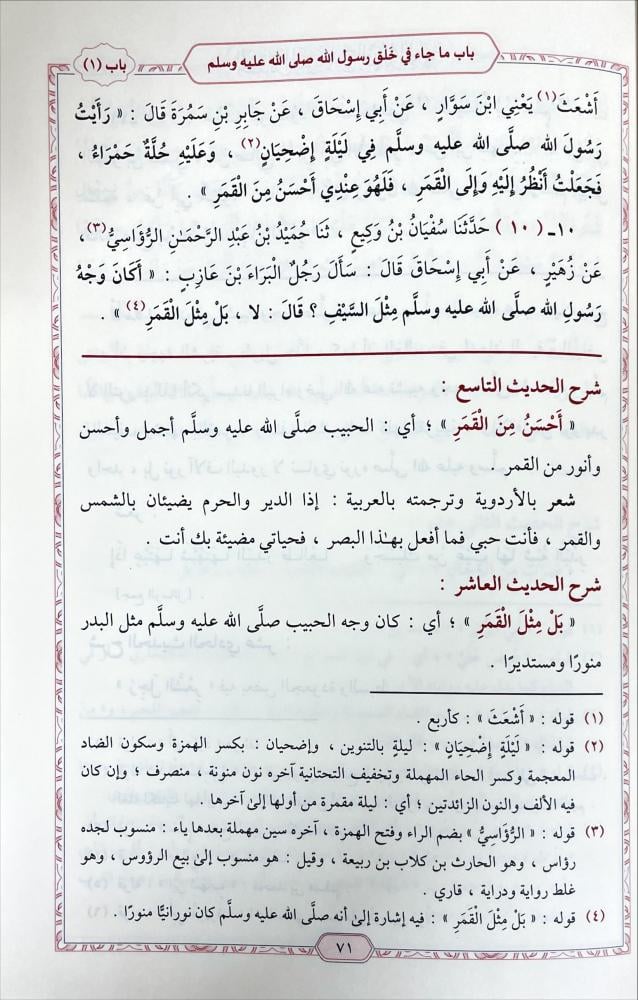 باب ما جاء في خَلْق رسول الله صلى الله عليه وسلم
باب (١)
أَشْعَثَ(١) يَعْنِي ابْنَ سَوَّارٍ ، عَنْ أَبِي إِسْحَاقَ ، عَنْ جَابِرِ بْنِ سَمُرَةَ قَالَ : « رَأَيْتُ
رَسُولَ اللهِ صلَّى الله عليه وسلَّم فِي لَيْلَةٍ إِضْحِيَانٍ(٢) ، وَعَلَيْهِ حُلَّةٌ حَمْرَاءُ ،
فَجَعَلْتُ أَنْظُرُ إِلَيْهِ وَإِلَى الْقَمَرِ ، فَلَهُوَ عِنْدِي أَحْسَنُ مِنَ الْقَمَرِ » .
١٠ـ ( ١٠ ) حَدَّثَنَا سُفْيَانُ بْنُ وَكِيعٍ ، ثَنَا حُمَيْدُ بْنُ عَبْدِ الرَّحْمَـٰنِ الرُّؤَاسِيُّ(٣) ،
عَنْ زُهَيْرٍ ، عَنْ أَبِي إِسْحَاقَ قَالَ : سَأَلَ رَجُلٌ الْبَرَاءَ بْنَ عَازِبٍ : « أَكَانَ وَجْهُ
رَسُولِ اللهِ صلَّى الله عليه وسلَّم مِثْلَ السَّيْفِ ؟ قَالَ : لا ، بَلْ مِثْلَ الْقَمَرِ(٤) » .
شرح الحديث التاسع :
« أَحْسَنُ مِنَ الْقَمَرِ » ؛ أي : الحبيب صلَّى الله عليه وسلَّم أجمل وأحسن
وأنور من القمر .
شعر بالأردوية وترجمته بالعربية : إذا الدير والحرم يضيئان بالشمس
والقمر ، فأنت حبي فما أفعل بهـٰذا البصر ، فحياتي مضيئة بك أنت .
شرح الحديث العاشر :
« بَلْ مِثْلَ الْقَمَرِ » ؛ أي : كان وجه الحبيب صلَّى الله عليه وسلَّم مثل البدر
منورًا ومستديرًا .
(١) قوله : « أَشْعَثَ » : كأربع .
(٢) قوله : « لَيْلَةٍ إِضْحِيَانٍ » : ليلةٍ بالتنوين ، وإضحيان : بكسر الهمزة وسكون الضاد
المعجمة وكسر الحاء المهملة وتخفيف التحتانية آخره نون منونة ، منصرف ؛ وإن كان
فيه الألف والنون الزائدتين ؛ أي : ليلة مقمرة من أولها إلىٰ آخرها .
(٣) قوله : « الرُّؤَاسِيُّ » بضم الراء وفتح الهمزة ، آخره سين مهملة بعدها ياء : منسوب لجده
رؤاس ، وهو الحارث بن كلاب بن ربيعة ، وقيل : هو منسوب إلىٰ بيع الرؤوس ، وهو
غلط رواية ودراية ، قاري .
(٤) قوله : « بَلْ مِثْلَ الْقَمَرِ » : فيه إشارة إلىٰ أنه صلَّى الله عليه وسلَّم كان نورانيًّا منورًا .
٧١